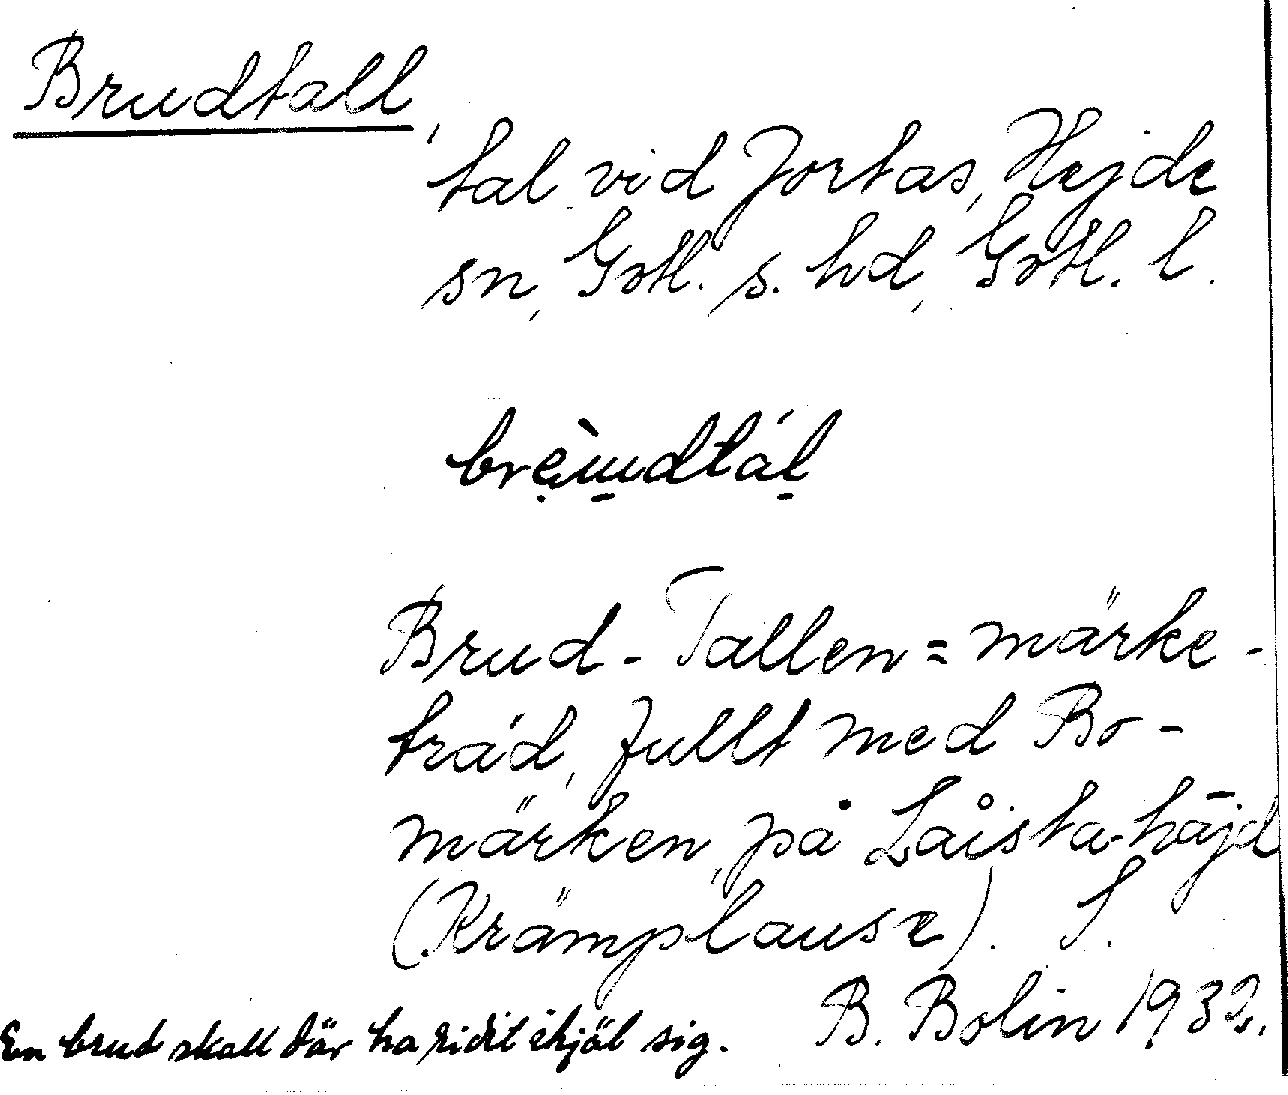 Brudtall,
tal vid Jortas, Hejde
sn, Gotl. s. hd, Gotl. l.
Brud-Tallen = märke-
träd, fullt med Bo-
märken, på Låista-häjd
(Krämplause). S.
B. Bolin 1932.
En brud skall där ha ridit ihjäl sig.